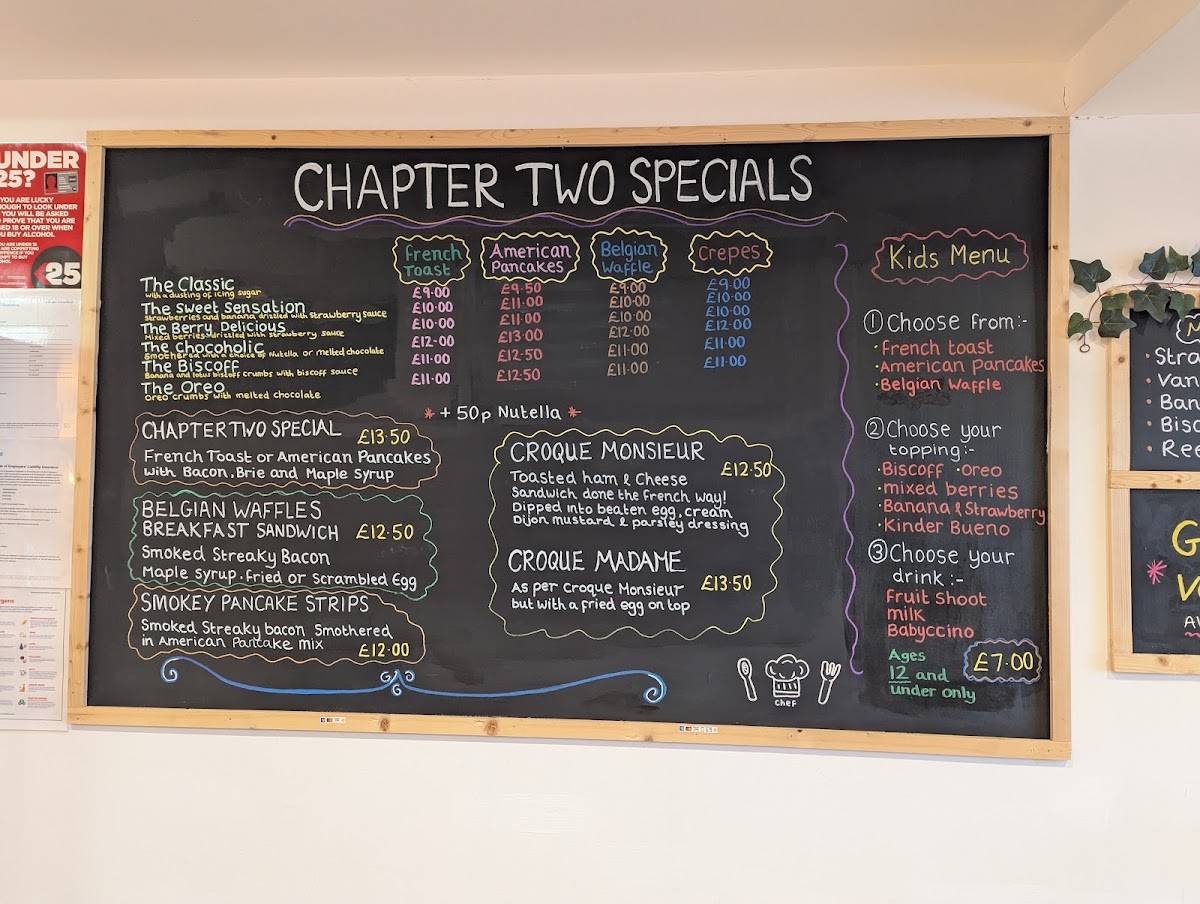 UNDER
25?
YOU ARE LUCKY
ENOUGH TO LOOK UNDER
YOU WILL BE ASKED
PROVE THAT YOU ARE
18 OR OVER WHEN
BUY ALCOHOL
25
CHAPTER TWO SPECIALS
French Toast
American Pancakes
Belgian Waffle
Crepes
The Classic £9.00 £9.50 £9.00 £9.00
with a dusting of icing sugar
The Sweet Sensation £10.00 £11.00 £10.00 £10.00
Strawberries and banana drizzled with strawberry sauce
The Berry Delicious £10.00 £11.00 £10.00 £10.00
Mixed berries drizzled with strawberry sauce
The Chocoholic £12.00 £13.00 £12.00 £12.00
Smothered with a choice of Nutella or melted chocolate
The Biscoff £11.00 £12.50 £11.00 £11.00
Banana and lotus biscoff crumbs with biscoff sauce
The Oreo £11.00 £12.50 £11.00 £11.00
Oreo crumbs with melted chocolate
* + 50p Nutella *
CHAPTER TWO SPECIAL £13.50
French Toast or American Pancakes
with Bacon, Brie and Maple Syrup
BELGIAN WAFFLES
BREAKFAST SANDWICH £12.50
Smoked Streaky Bacon
Maple Syrup. Fried or Scrambled Egg
SMOKEY PANCAKE STRIPS
Smoked Streaky bacon Smothered
in American Pancake mix £12.00
CROQUE MONSIEUR £12.50
Toasted ham & Cheese
Sandwich done the French way!
Dipped into beaten egg, cream
Dijon mustard & parsley dressing
CROQUE MADAME £13.50
As per Croque Monsieur
but with a fried egg on top
chef
Kids Menu
① Choose from:-
· French toast
· American Pancakes
· Belgian Waffle
② Choose your
topping:-
· Biscoff · Oreo
· mixed berries
· Banana & Strawberry
· Kinder Bueno
③ Choose your
drink :-
Fruit Shoot
milk
Babyccino
Ages
12 and
under only
£7.00